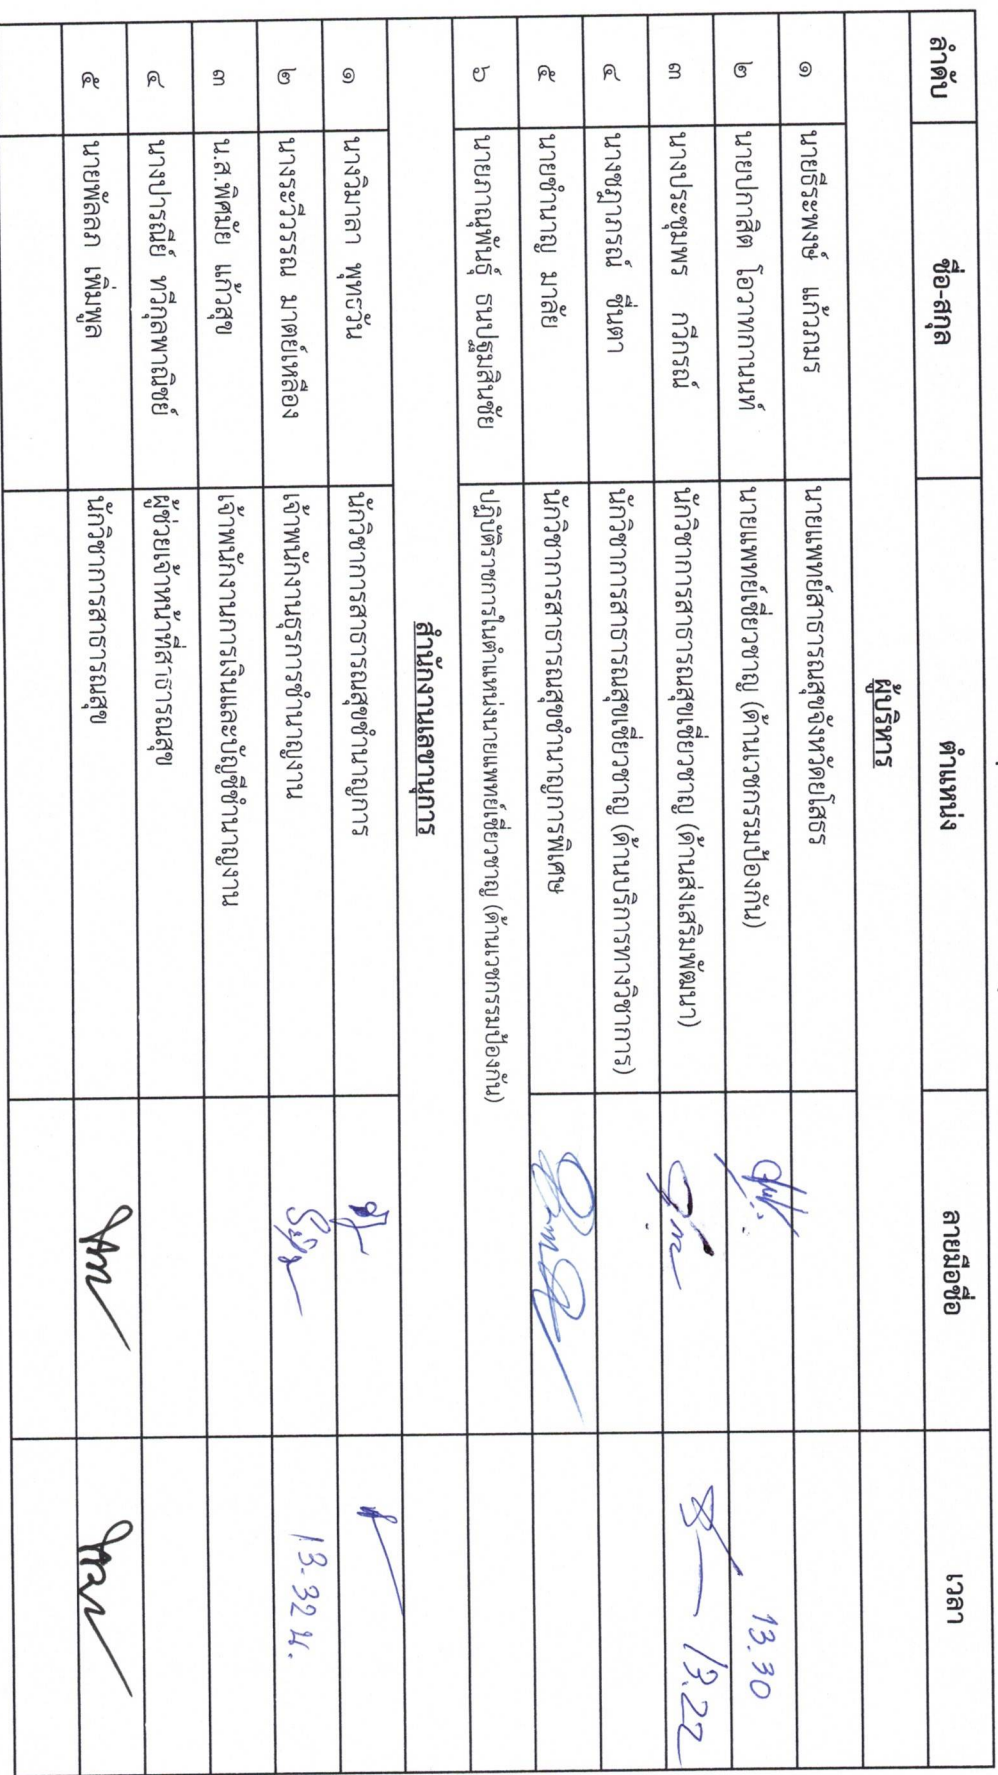 ลำดับ ชื่อ-สกุล ตำแหน่ง ลายมือชื่อ เวลา
ผู้บริหาร
๑ นายธีระพงษ์ แก้วภมร นายแพทย์สาธารณสุขจังหวัดยโสธร
๒ นายปกาสิต โอวาทกานนท์ นายแพทย์เชี่ยวชาญ (ด้านเวชกรรมป้องกัน) 13.30
๓ นางประชุมพร กวีกรณ์ นักวิชาการสาธารณสุขเชี่ยวชาญ (ด้านส่งเสริมพัฒนา) 13.22
๔ นางชฎาภรณ์ ชื่นตา นักวิชาการสาธารณสุขเชี่ยวชาญ (ด้านบริการทางวิชาการ)
๕ นายชำนาญ มาลัย นักวิชาการสาธารณสุขชำนาญการพิเศษ
๖ นายภาณุพันธุ์ ธนปฐมสินชัย ปฏิบัติราชการในตำแหน่งนายแพทย์เชี่ยวชาญ (ด้านเวชกรรมป้องกัน)
สำนักงานเลขานุการ
๑ นางวิมาลา พุทธวัน นักวิชาการสาธารณสุขชำนาญการ
๒ นางระวีวรรณ มาตย์เหลือง เจ้าพนักงานธุรการชำนาญงาน 13.32 น.
๓ น.ส.พิศมัย แก้วสุข เจ้าพนักงานการเงินและบัญชีชำนาญงาน
๔ นางปารณีย์ ทวีกุลพาณิชย์ ผู้ช่วยเจ้าหน้าที่สาธารณสุข
๕ นายพัลลภ เพิ่มพูล นักวิชาการสาธารณสุข